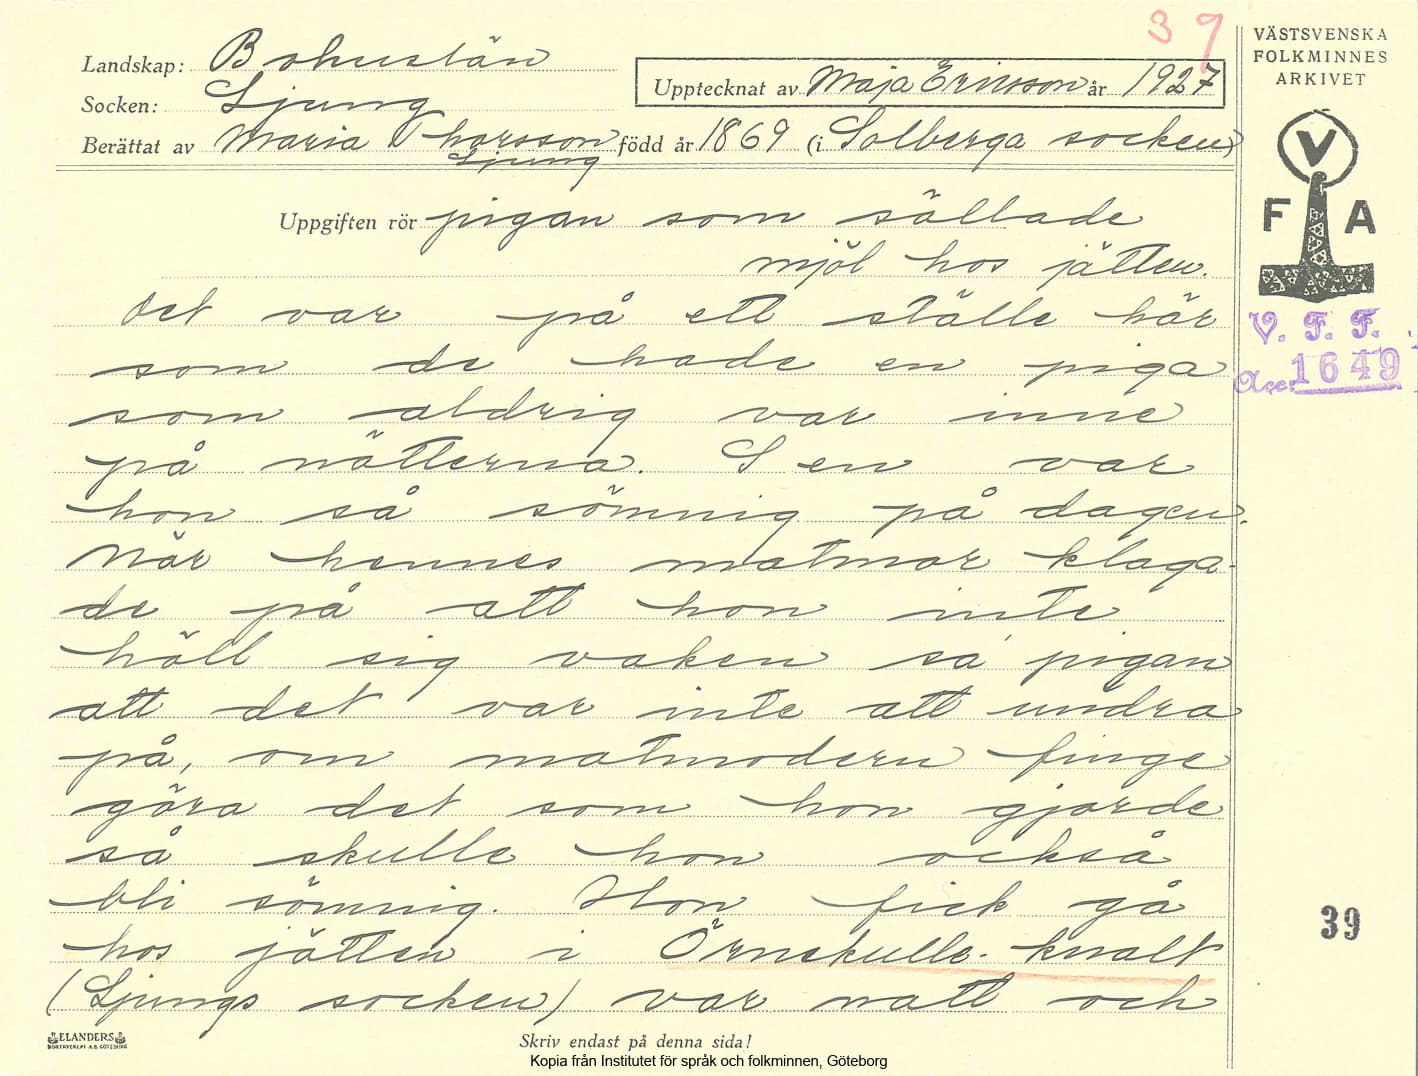 39
VÄSTSVENSKA
FOLKMINNES
ARKIVET
Landskap: Bohuslän
Upptecknat av Maja Ericson år 1927
Socken: Ljung
Berättat av Maria Thorsson född år 1869 (i Solberga socken)
Ljung
V
F A
Uppgiften rör pigan som sållade
mjöl hos jätten.
V. F. F.
Acc. 1649
Det var på ett ställe här
som de hade en piga
som aldrig var inne
på nätterna. Sen var
hon så sömnig på dagen.
När hennes matmor klaga-
de på att hon inte
höll sig vaken sa pigan
att det var inte att undra
på, om matmodern finge
göra det som hon gjorde
så skulle hon också
bli sömnig. Hon fick gå
39
hos jätten i Örnekulle-knalt
(Ljungs socken) var natt och
ELANDERS
BOKTRYCKERI A.B. GÖTEBORG
Skriv endast på denna sida!
Kopia från Institutet för språk och folkminnen, Göteborg